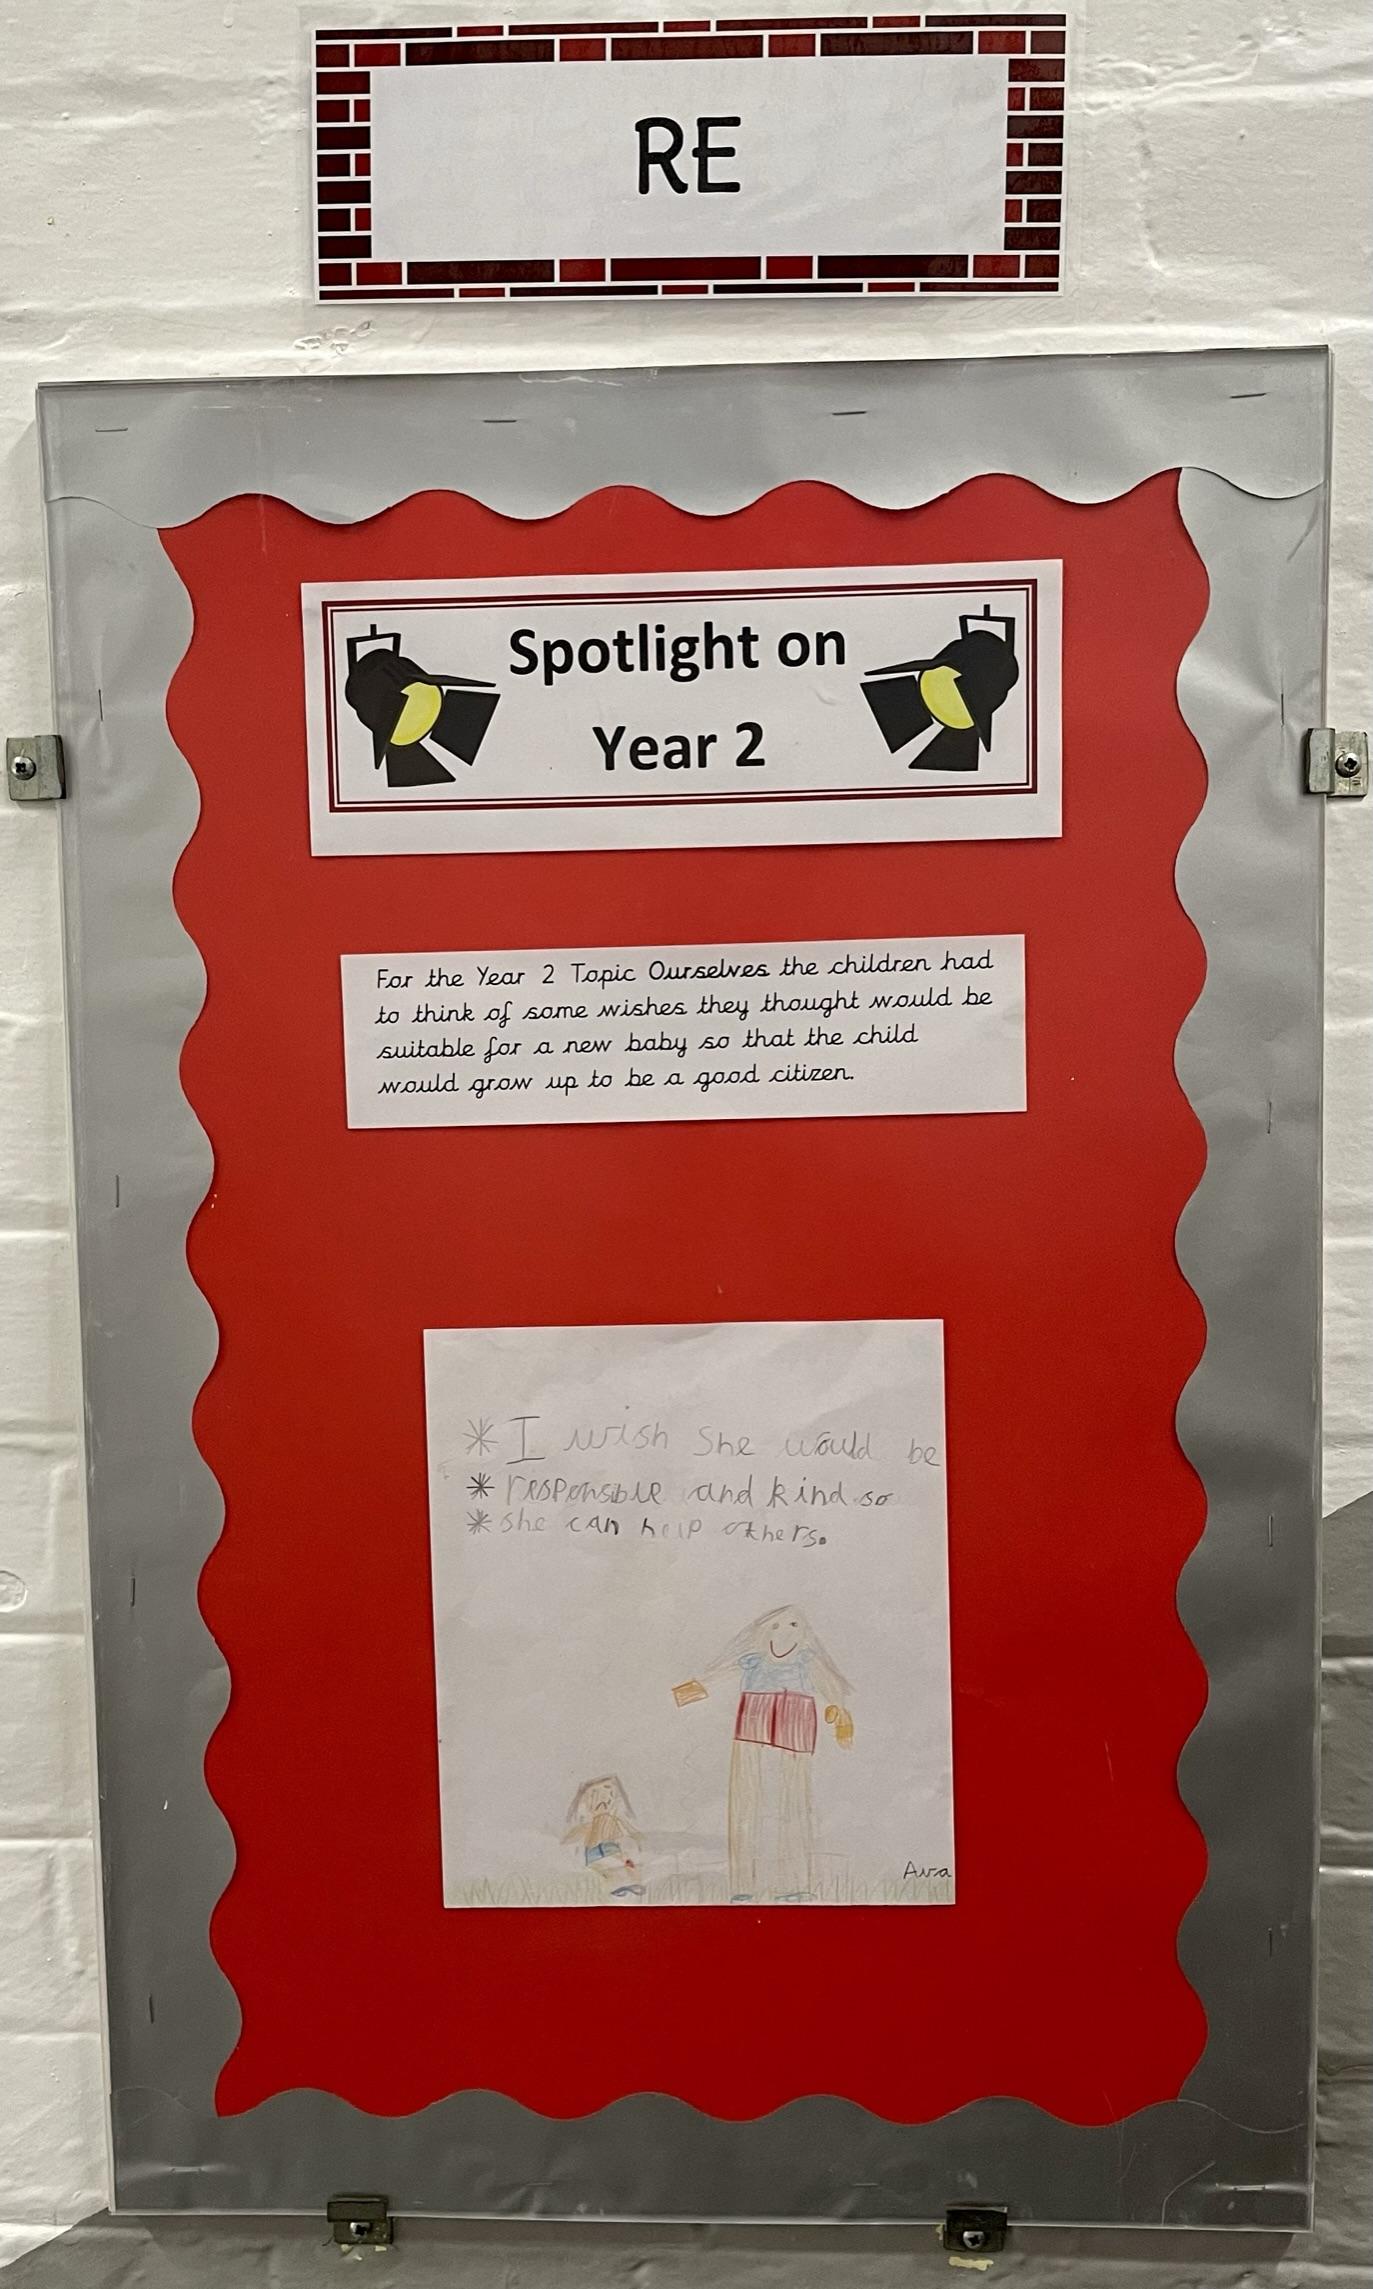 RE
Spotlight on
Year 2
For the Year 2 Topic Ourselves the children had
to think of some wishes they thought would be
suitable for a new baby so that the child
would grow up to be a good citizen.
* I wish She would be
* responsible and kind so
* she can help others.
Ava